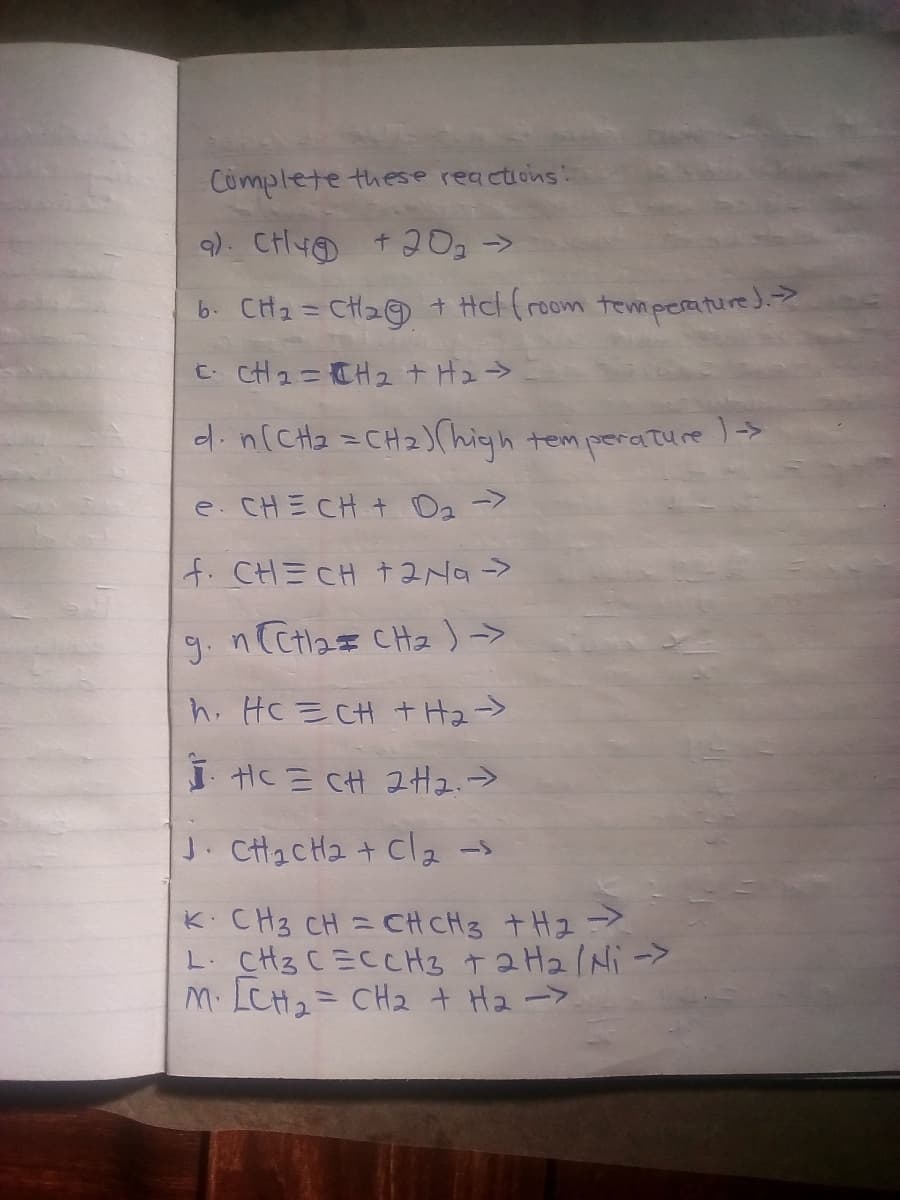 Complete these reactions:
a). CH4(g) + 2O2 ->
b. CH2 = CH2(g) + HCl (room temperature). ->
c. CH2 = CH2 + H2 ->
d. n(CH2 = CH2)(high temperature) ->
e. CH ≡ CH + O2 ->
f. CH ≡ CH + 2Na ->
g. n(CH2 = CH2) ->
h. HC ≡ CH + H2 ->
I. HC ≡ CH 2H2. ->
J. CH2CH2 + Cl2 ->
K. CH3 CH = CHCH3 + H2 ->
L. CH3 C ≡ C CH3 + 2H2 / Ni ->
M. [CH2 = CH2 + H2 ->